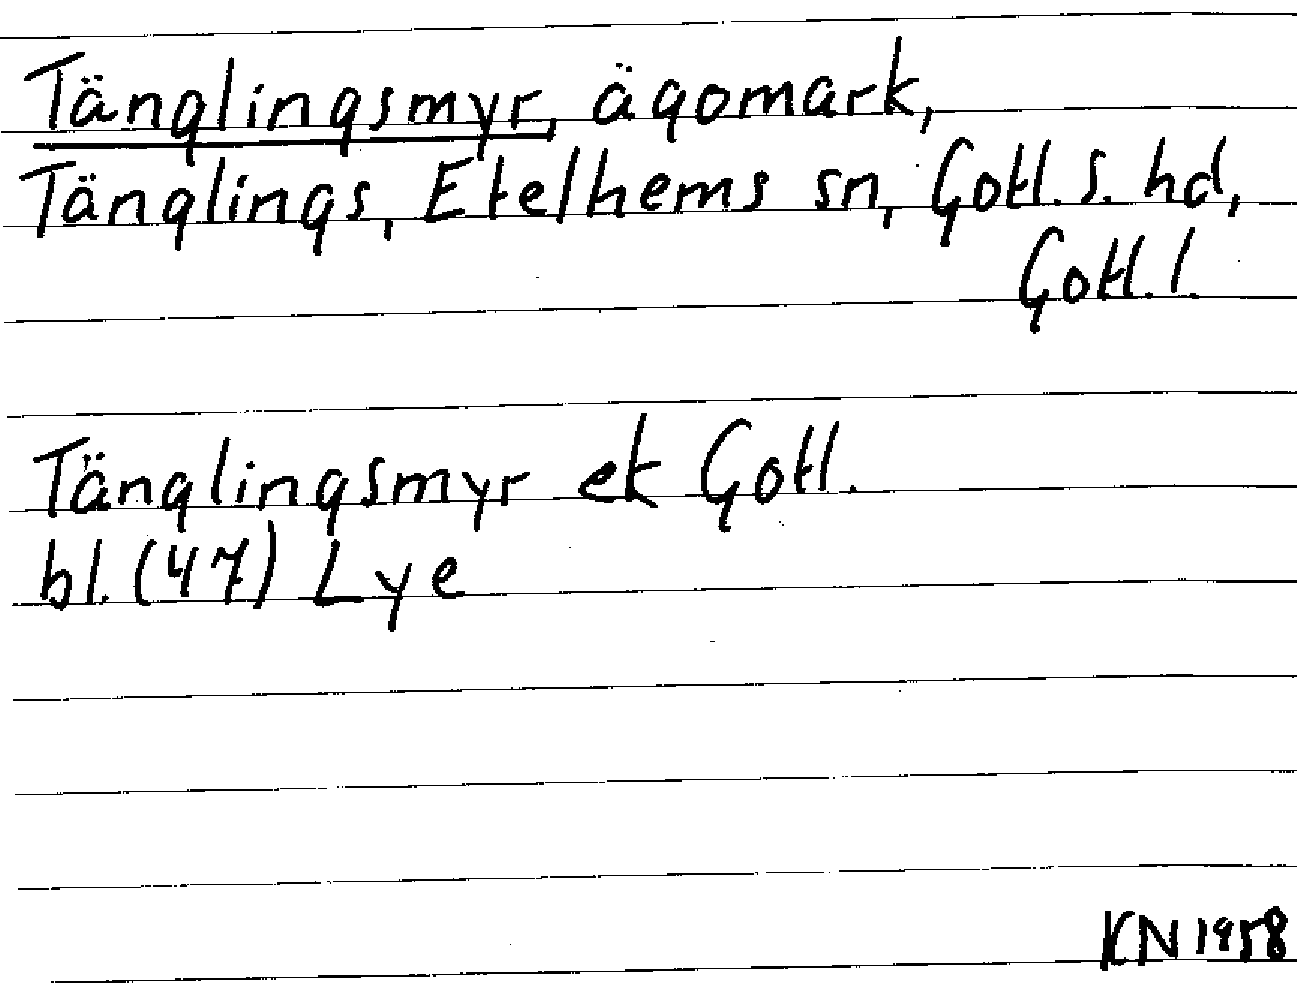 Tänglingsmyr, ägomark,
Tänglings, Etelhems sn, Gotl. S. hd,
Gotl. l.
Tänglingsmyr ek Gotl.
bl. (47) Lye
KN 1958